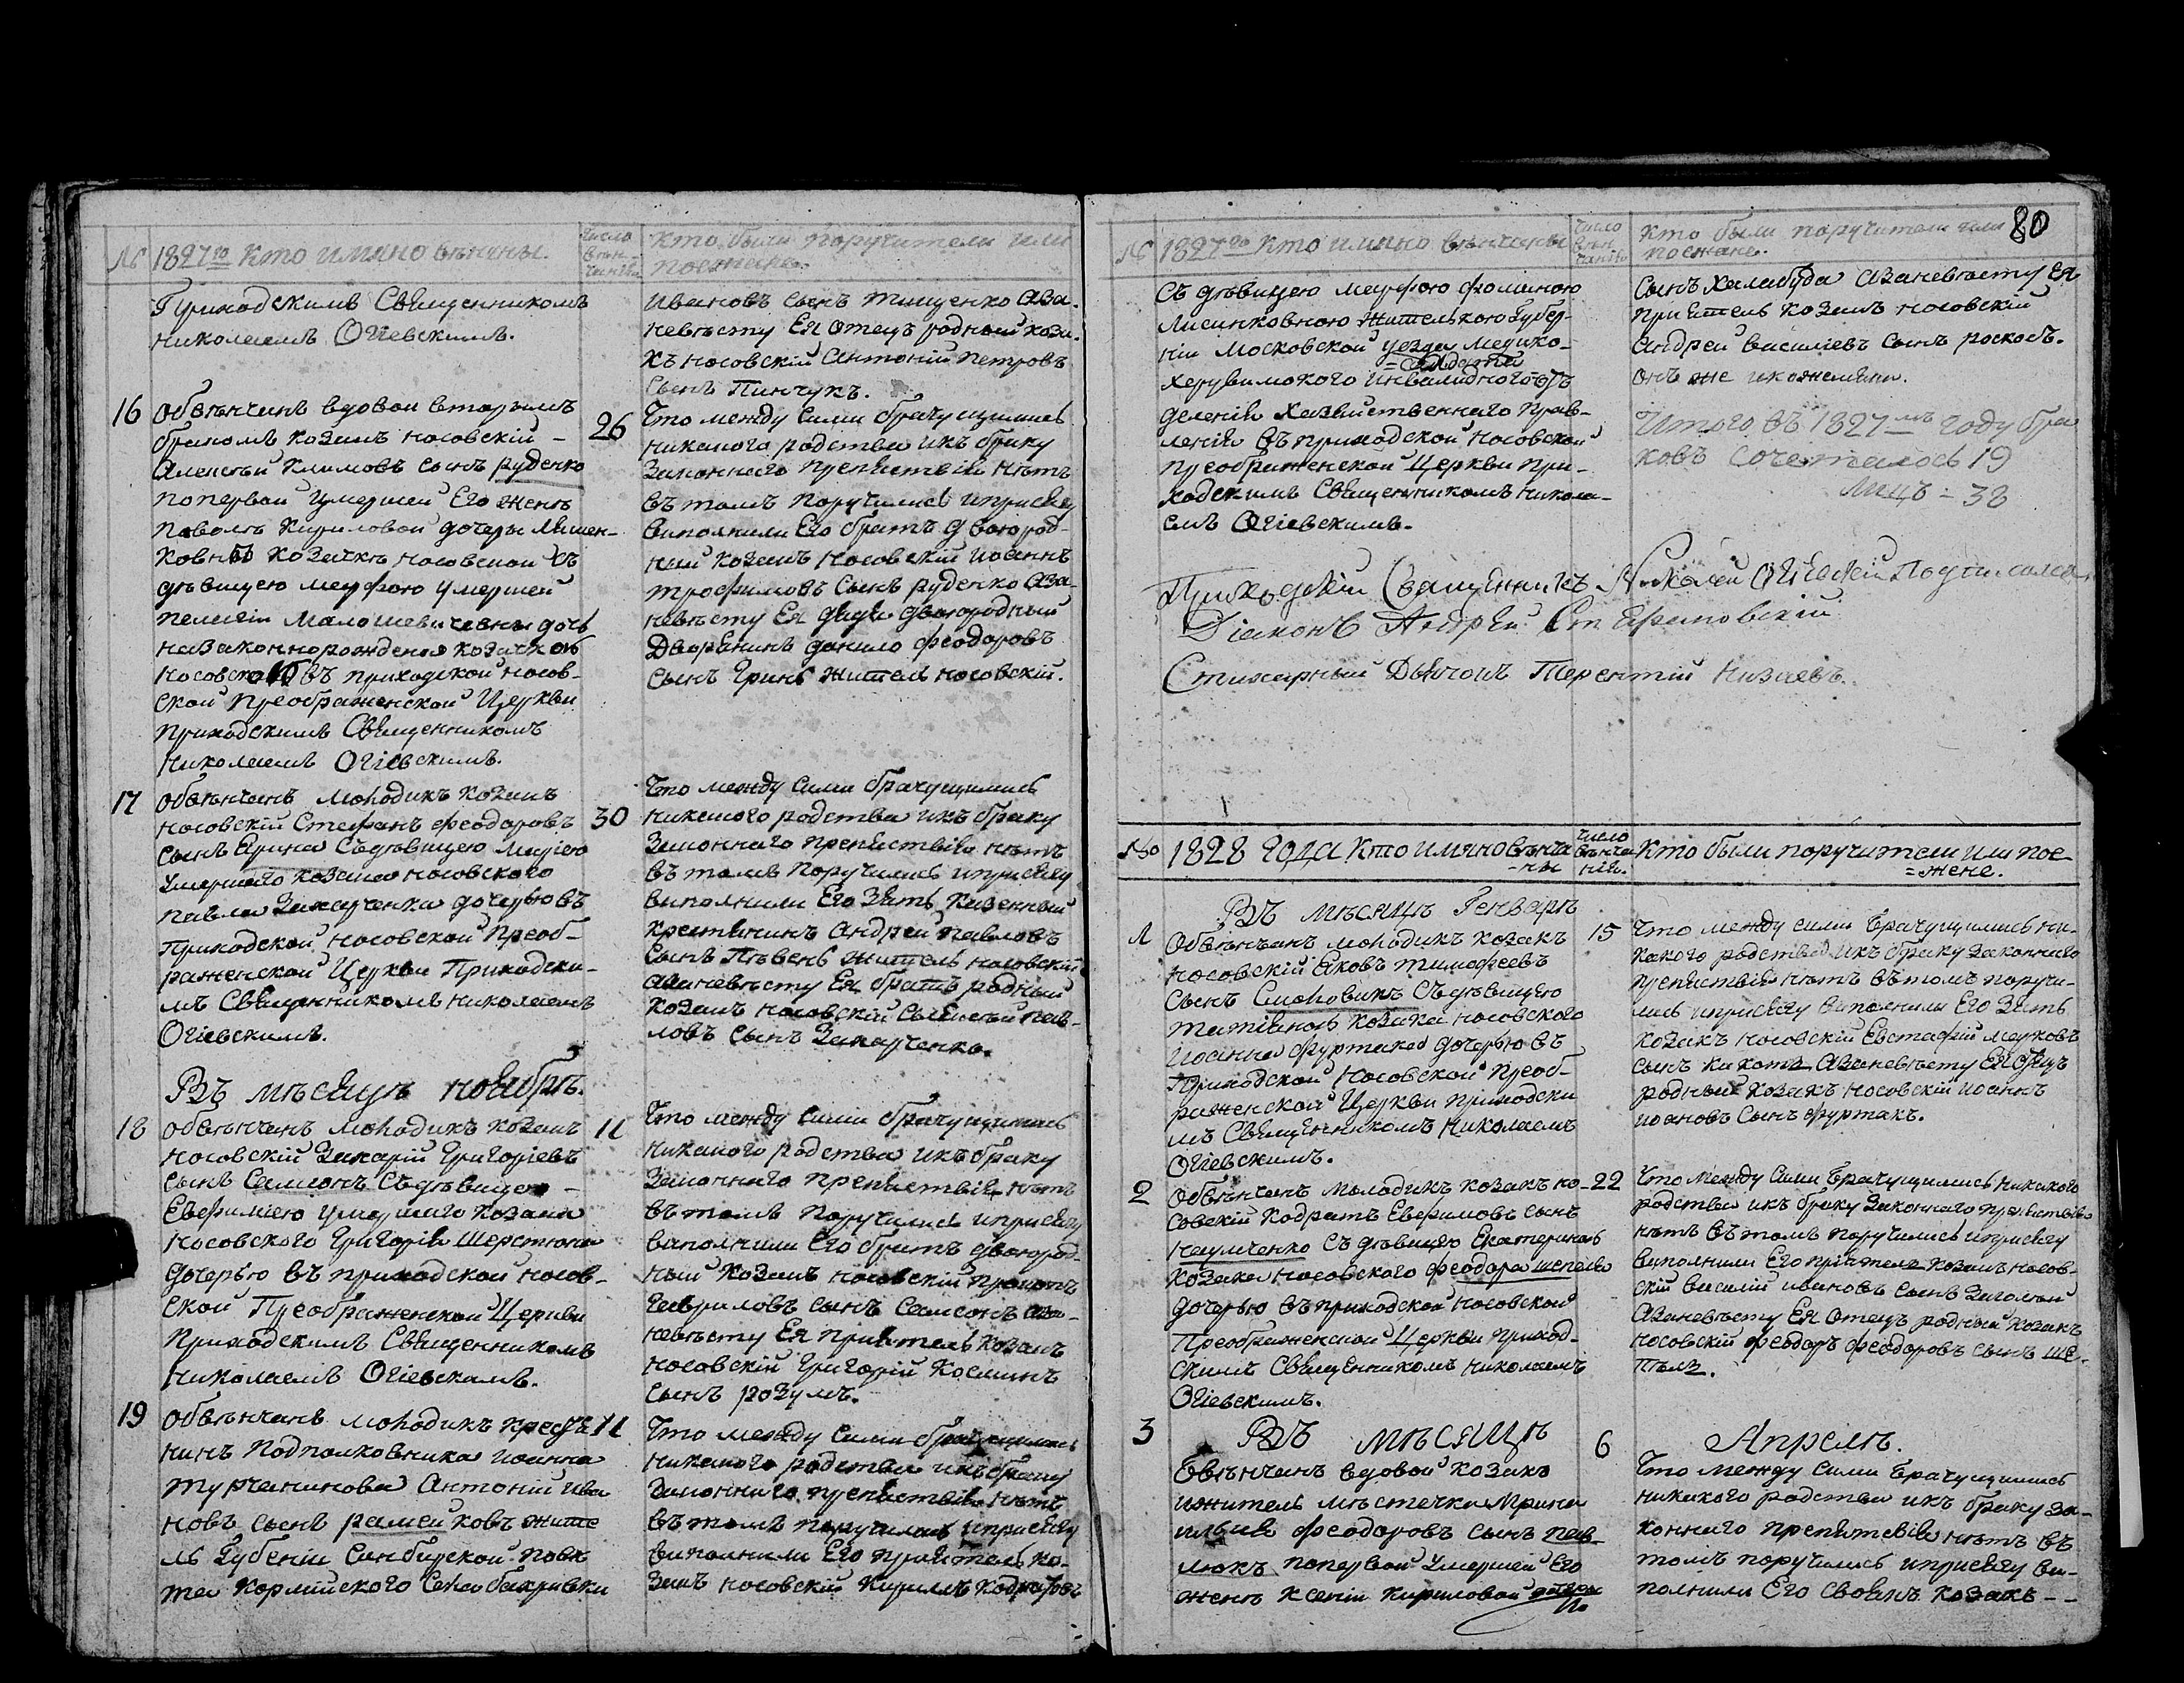 № 1827го Кто имяно венчаны.
Число вѣн- чанія
Кто были Поручители или
поезжане.
Приходскимъ Священникомъ
Николаемъ Огіевскимъ.
Ивановъ сынъ Тищенко Аза-
невѣсту Ея отецъ родный коза-
къ Носовскій Антоній Петровъ
сынъ Пинчукъ.
16 Обвѣнчанъ вдовой вторымъ
бракомъ козакъ Носовскій -
Алексѣй Климовъ сынъ Руденко
попервой умершей Его женѣ
Кириловой дочеры
козачкѣ Носовской съ
дѣвицею Марфою умершей
Пелагіи Малошевичевны дочь
незаконнорожденя козачкою
Носовско въ приходской Носов-
ской Преображенской Церкви
приходскимъ Священникомъ
Николаемъ Огіевскимъ.
26
Что между сими брачущимись
никакого родства икъ браку
законнаго препятствія нѣтъ
въ томъ поручились иприсягу
виполнили Его братъ двоюрод-
ный козакъ Носовскій Иоаннъ
Трофимовъ сынъ Руденко Аза-
невѣсту Ея дядя двоюродный
Дворянинъ Данило Феодоровъ
сынъ Гринь житель Носовскій.
17 Обвѣнчанъ молодикъ козакъ
Носовскій Стефанъ Феодоровъ
сынъ Ярина съдѣвицею Маріею
умершаго козака Носовского
Павла Захарченка дочерью въ
приходской Носовской Преоб-
раженской Церкви Приходски-
мъ Священникомъ Николаемъ
Огіевскимъ.
30
Что между сими брачущимись
никакого родства икъ браку
законнаго препятствія нѣтъ
въ томъ поручились иприсягу
виполнили Его зять казенный
крестянинъ Андрей Павловъ
сынъ Пѣвень житель Носовскій
Азаневѣсту Ея братъ родный
козакъ Носовскій Пав-
ловъ сынъ Захарченко.
Въ мѣсяцѣ Ноябрѣ.
18 Обвѣнчанъ молодикъ козакъ
Носовскій Захарій Григоріевъ
сынъ Самсонъ съдѣвицею -
Евфиміею умершаго козака
Носовского Григорія Шерстюка
дочерью въ приходской Носов-
ской Преображенской Церкви
Приходскимъ Священникомъ
Николаемъ Огіевскимъ.
11
Что между сими брачущимись
никакого родства икъ браку
законнаго препятствія нѣтъ
въ томъ поручились иприсягу
виполнили Его братъ двоюрод-
ный козакъ Носовскій
Гавриловъ сынъ Самсонъ Аза-
невѣсту Ея пріятель козакъ
Носовскій Григорій Косминъ
сынъ Розумъ.
19 Обвѣнчанъ молодикъ
нинъ Подполковника Иоанна
Турчанинова Антоній Ива
новъ сынъ жите
ль Губеніи Синбирской
Села
11
Что между сими брачущимись
никакого родства икъ браку
законнаго препятствія нѣтъ
въ томъ поручились иприсягу
виполнили Его пріятель ко-
закъ Носовскій Кирилъ
80
№ 1827го Кто имяно венчаны
Число вѣн чанія
Кто были поручители или
поезжане.
Съ дѣвицею Марфою Фоминою
жителькою Губер-
ніи Московской уезда
Инвалидного
деленія Хазяйственнаго прав-
ленія въ приходской Носовской
Преображенской Церкви при-
ходскимъ Священникомъ Никола-
емъ Огіевскимъ.
Сынъ Халабуда Азаневѣсту Ея
пріятель козакъ Носовскій
Андрей Василіевъ сынъ
онъ же
Итого въ 1827мъ году бра
ковъ сочеталось 19
Лицъ = 38
Приходскій Священникъ Николай Огіевскій Подписался
Діаконъ Андрей Стефановскій
Стихарный Дьячокъ Терентій
№ 1828 года Кто имяно вѣнча
-ны
Число вѣнча нія.
Кто были поручители или пое-
=жане.
Въ мѣсяцѣ Генварѣ
1 Обвѣнчанъ молодикъ козакъ
Носовскій Яковъ Тимофеевъ
сынъ съдѣвицею
Татіяною козака Носовского
Иоанна Фуртака дочерью въ
Приходской Носовской Преоб-
раженской Церкви приходски
мъ Священникомъ Николаемъ
Огіевскимъ.
15
Что между сими брачущимись ни-
какого родства икъ браку законнаго
препятствія нѣтъ въ томъ поручи-
лись иприсягу виполнили Его зять
козакъ Носовскій Евстафій Марковъ
сынъ Азаневѣсту Ея отецъ
родный козакъ Носовскій Иоаннъ
Иоановъ сынъ Фуртакъ.
2 Обвѣнчанъ молодикъ козакъ но-
совскій Кодратъ Евфимовъ сынъ
Наумченко съ дѣвицею Екатериною
козака Носовского Феодора
дочерью въ приходской Носовской
Преображенской Церкви приход-
скимъ Священникомъ Николаемъ
Огіевскимъ.
22
Что между сими брачущимись никакого
родства икъ браку законнаго препятствія
нѣтъ въ томъ поручились иприсягу
виполнили Его пріятель козакъ Носов-
скій Василій Ивановъ сынъ
Азаневѣсту Ея отецъ родный козакъ
Носовскій Феодоръ Феодоровъ сынъ
3 Въ мѣсяцѣ
6 Апрелѣ.
Обвѣнчанъ вдовой козакъ
ижитель мѣстечка Мрина
Илія Феодоровъ сынъ Пав-
люкъ попервой умершей Его
женѣ Ксеніи Кириловой дочеры
Что между сими брачущимись
никакого родства икъ браку за-
коннаго препятствія нѣтъ въ
томъ поручились иприсягу ви-
полнили Его своякъ козакъ - -